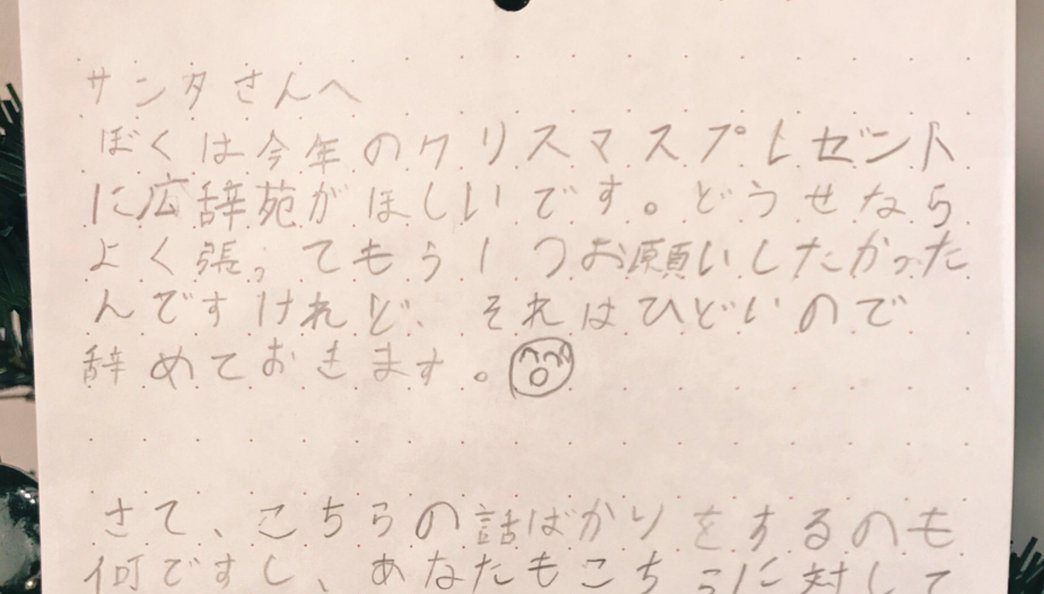 サンタさんへ
ぼくは今年のクリスマスプレゼント
に広辞苑がほしいです。どうせなら
よく張ってもう1つお願いしたかった
んですけれど、それはひどいので
辞めておきます。
さて、こちらの話ばかりをするのも
何ですし、あなたもこちらに対して